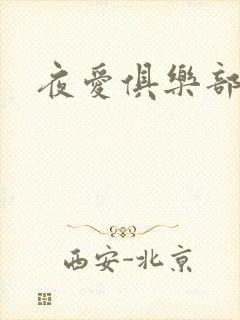 夜愛俱樂部
西安-北京